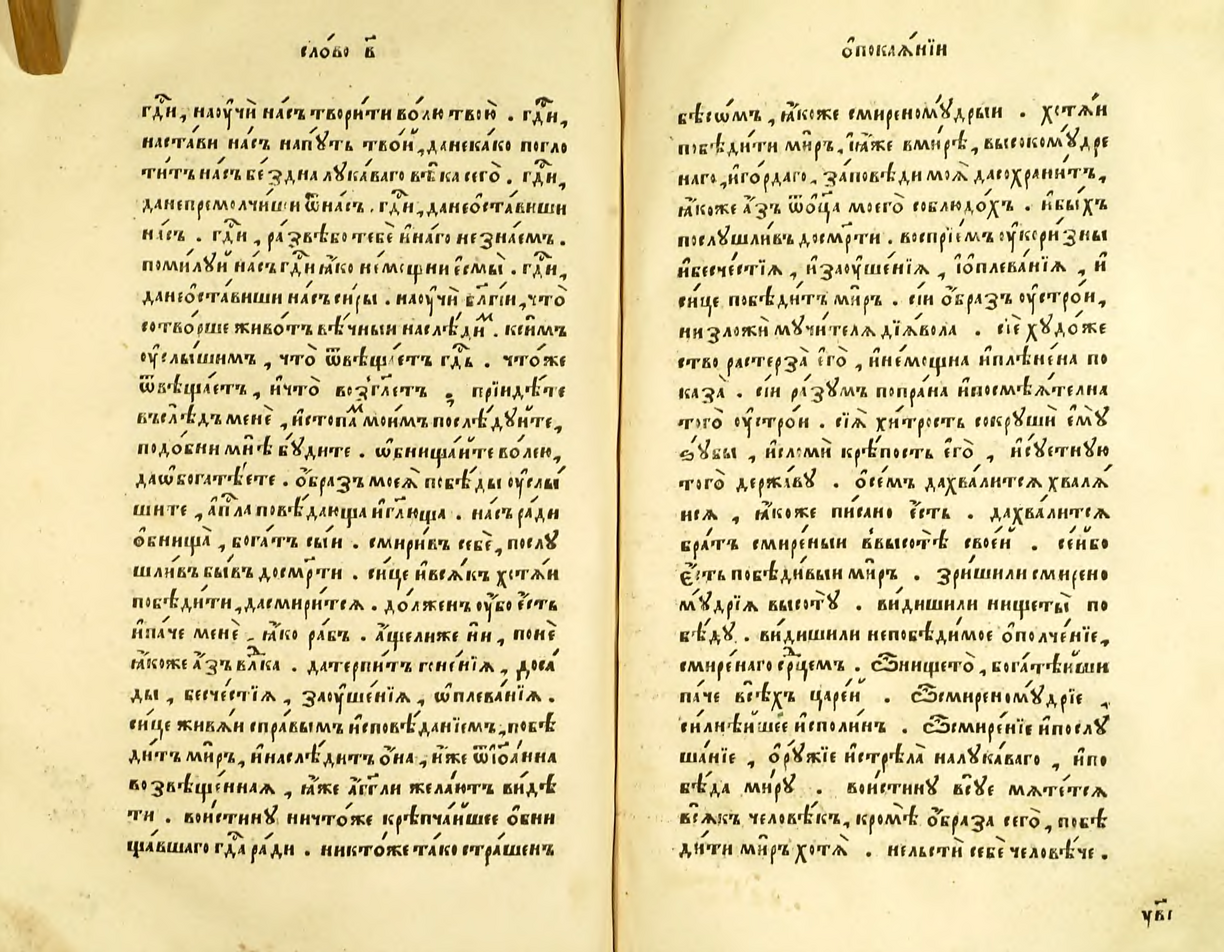 сло́во в҃
гдⷭ҇и, наꙋчѝ на́съ твори́ти во́лю твою̀ . гдⷭ҇и,
наста́ви на́съ напꙋ́ть тво́й, данека́ко погло
ти́тъ на́съ бе́здна лꙋка́ваго вѣ́ка сего̀ . гдⷭ҇и,
данепремолчи́ши ѿна́съ . гдⷭ҇и, данеѻ҆ста́виши
на́съ . гдⷭ҇и, ра́звѣ бо тебѐ и҆на́го не зна́емъ .
поми́лꙋй на́съ гдⷭ҇и ꙗ҆́ко не́мощнии є҆смы̀ . гдⷭ҇и,
данеѻ҆ста́виши на́съ си́ры . наꙋчѝ бл҃гі́и, что̀
сотво́рше живо́тъ вѣ́чныи наслѣ́димъ . ксѝмъ
ᲂу҆слы́шимъ , что̀ ѿвѣща́етъ гдⷭ҇ь . что́же
ѿвѣща́етъ , и҆что̀ возгл҃етъ , прїидѣ́те
въслѣ́дъ менѐ , и҆стопа́мъ мои́мъ послѣ́дꙋйте ,
подо́бни мнѣ̀ бꙋ́дите . ѡ҆бнища́йте во́лею,
даѡ҆богатѣ́ете . ѻ҆́бразъ моеѧ̀ побѣ́ды ᲂу҆слы́
шите , а҆пⷭ҇ла повѣ́дающа и҆гл҃юща . на́съ ра́ди
ѻ҆бнища̀ , бога́тъ сы́и . смири́въ себѐ , послꙋ́
шливъ бы́въ досмр҃ти . си́це и҆всѧ́къ хотѧ́и
побѣди́ти, дасмири́тсѧ . до́лженъ ᲂу҆́бо є҆́сть
и҆па́че менѐ , ꙗ҆́ко ра́бъ . а҆́щелиже нѝ , понѐ
ꙗ҆́коже а҆́зъ влⷣка . датерпи́тъ гоне́нїѧ , доса́
ды , бесче́стїѧ , заꙋше́нїѧ , ѡ҆плева́нїѧ .
си́це живѧ́и спра́вымъ и҆сповѣ́данїемъ, побѣ
ди́тъ ми́ръ, и҆наслѣ́дитъ ѻ҆́на, и҆́же ѿїѻа́нна
возвѣще́ннаѧ , ꙗ҆́же а҆́гг҃ли жела́ютъ ви́дѣ
ти . вои́стинꙋ ничто́же крѣпча́йшее ѻ҆бни
ща́вшаго гдⷭ҇а ра́ди . никто́же та́ко стра́шенъ
ѻ҆покаѧ́нїи
бѣсѡ́мъ , ꙗ҆́коже смиреномꙋ́дрыи . хотѧ́и
побѣди́ти ми́ръ, и҆ꙗ҆́же вми́рѣ, высокомꙋ́дре
наго, и҆го́рдаго, за́повѣди моѧ̀ дасохрани́тъ ,
ꙗ҆́коже а҆́зъ ѿѻц҃а̀ моего̀ соблюдо́хъ . и҆бы́хъ
послꙋшли́въ досмр҃ти . воспрїе́мъ ᲂу҆кори́зны
и҆бесче́стїѧ , и҆заꙋше́нїѧ , і҆ѻплева́нїѧ , и҆
си́це побѣди́тъ ми́ръ . сі́и ѻ҆́бразъ ᲂу҆стро́и,
ни́зложи мꙋчи́телѧ дїѧ́вола . сїѐ хꙋдо́же
ство растерза̀ є҆го̀ , и҆не́мощна и҆плѣне́на по
каза̀ . сі́и ра́зꙋмъ попра́на и҆посмѣѧ́телна
того̀ ᲂу҆стро́и . сїѧ̀ хи́трость сокрꙋшѝ є҆мꙋ̀
зꙋ́бы , и҆сломѝ крѣ́пость є҆го̀ , и҆сꙋ́етнꙋю
того̀ держа́вꙋ . ѻ҆се́мъ дахва́литсѧ хвалѧ́
исѧ , ꙗ҆́коже пи́сано є҆́сть . дахва́литсѧ
бра́тъ смире́ныи ввысотѣ̀ свое́й . се́йбо
є҆́сть побѣди́выи ми́ръ . зри́шили смирено
мꙋ́дрїѧ высотꙋ̀ . ви́дишили нищеты̀ по
бѣ́дꙋ . ви́дишили непобѣди́мое ѻ҆полче́нїе ,
смире́наго ср҃дцемъ . Ѽнището̀ , богатѣ́йши
па́че всѣ́хъ царе́й . Ѽсмиреномꙋ́дрїе ,
силнѣ́йшее и҆споли́нъ . Ѽсмире́нїе и҆послꙋ
ша́нїе , ѻ҆рꙋ́жїе и҆стрѣла̀ налꙋка́ваго , и҆по
бѣ́да ми́рꙋ . вои́стинꙋ всꙋ́е мѧте́тсѧ
всѧ́къ человѣ́къ, кромѣ̀ ѻ҆́браза сего̀ , побѣ
ди́ти ми́ръ хотѧ̀ . нельстѝ себѐ человѣ́че .
ѱв҃і